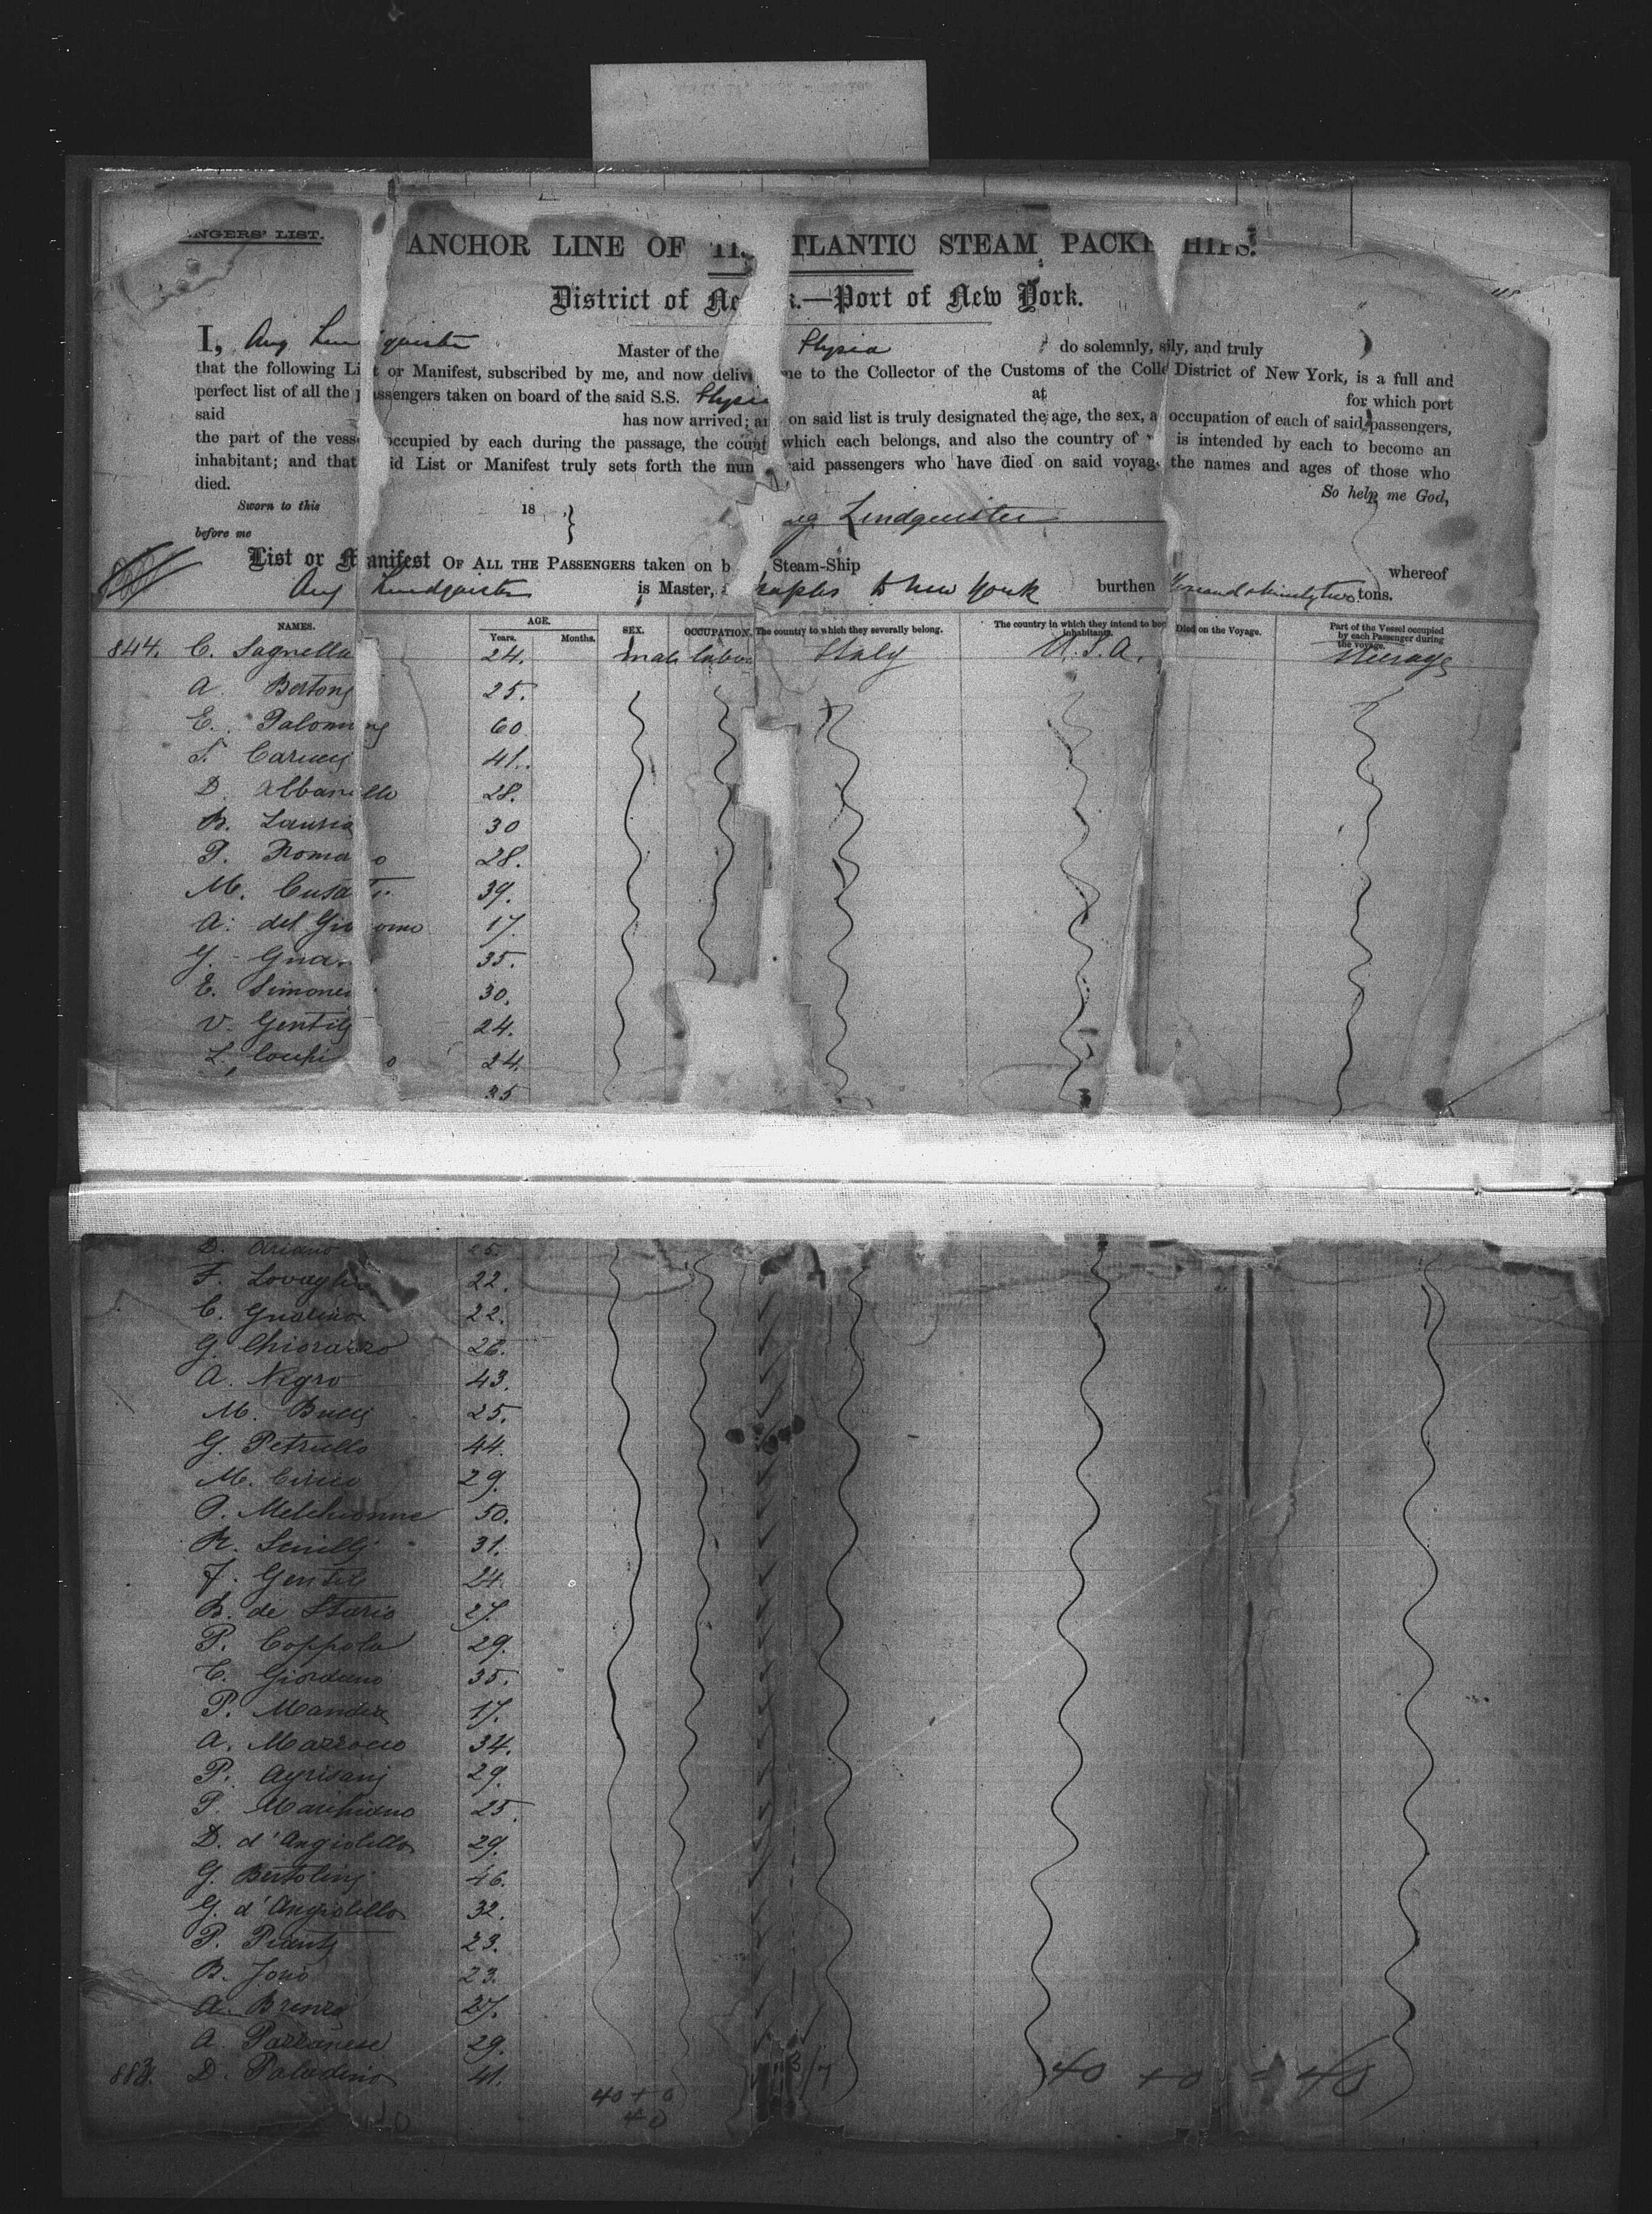 NGERS' LIST.
ANCHOR LINE OF TLANTIC STEAM PACK HIPS.
District of Ne k.—Port of New York.
I, Aug Lin quister Master of the Elysia do solemnly, s ily, and truly
that the following Li t or Manifest, subscribed by me, and now deliv me to the Collector of the Customs of the Colle District of New York, is a full and
perfect list of all the p assengers taken on board of the said S.S. Elysia at for which port
said has now arrived; an on said list is truly designated the age, the sex, a occupation of each of said passengers,
the part of the vess occupied by each during the passage, the count which each belongs, and also the country of is intended by each to become an
inhabitant; and that id List or Manifest truly sets forth the num said passengers who have died on said voyag the names and ages of those who
died.
So help me God,
Sworn to this 18
before me
ug Lindquister
List or Manifest OF ALL THE PASSENGERS taken on b Steam-Ship whereof
Aug Lindquister is Master, Naples to New York burthen tons.
NAMES. AGE. Years. Months. SEX. OCCUPATION. The country to which they severally belong. The country in which they intend to bec inhabitants. Died on the Voyage. Part of the Vessel occupied by each Passenger during the voyage.
844. C. Sagnella 24. male labor Italy U.S.A. Steerage
A. Bertonj 25.
E. Palomi nj 60
F. Caruccj 41.
D. Albani ello 28.
B. Lauria 30
P. Roma o 28.
M. Cusa 39.
A. del Gia omo 17.
G. Gua 35.
E. Simone 30.
V. Gentilj 24.
L. o 24.
35
D. Ariano 25.
F. Lovaglio 22.
C. Gualino 22.
G. Chiorazzo 26.
A. Negro 43.
M. Buccj 25.
G. Petrullo 44.
M. Cirico 29.
P. Melchionne 50.
R. 31.
F. Gentile 24.
B. de Stasio 27.
P. Coppola 29.
C. Giordano 35.
P. Mandia 17.
A. Mazzocco 34.
P. Agrisanj 29.
P. Marchiano 25.
D. d'Angiolillo 29.
G. Bertolinj 46.
G. d'Angiolillo 32.
P. 23.
B. Jorio 23.
A. Brenza 27.
A. Pazzanese 29.
883. D. Paladino 41.
40 + 0
40
40 + 0 = 40